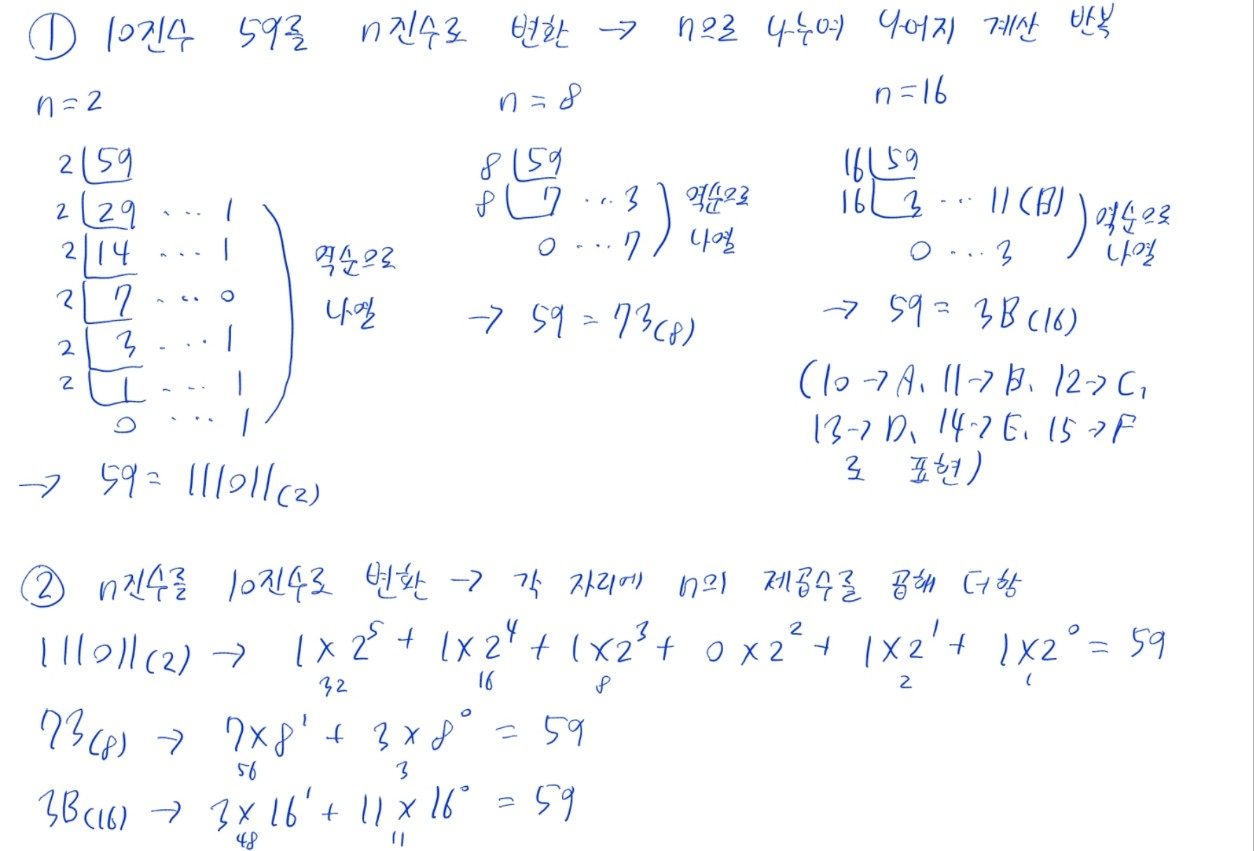 ① 10진수 59를 n진수로 변환 → n으로 나누어 나머지 계산 반복
n=2
2 59
2 29 ... 1
2 14 ... 1
2 7 ... 0
2 3 ... 1
2 1 ... 1
0 ... 1
역순으로
나열
→ 59 = 111011(2)
n = 8
8 59
8 7 ... 3
0 ... 7
역순으로
나열
→ 59 = 73(8)
n=16
16 59
16 3 ... 11(B)
0 ... 3
역순으로
나열
→ 59 = 3B(16)
(10→A, 11→B, 12→C,
13→D, 14→E, 15→F
로 표현)
② n진수를 10진수로 변환 → 각 자리에 n의 제곱수를 곱해 더함
111011(2) → 1×2⁵ + 1×2⁴ + 1×2³ + 0×2² + 1×2¹ + 1×2⁰ = 59
32 16 8 2 1
73(8) → 7×8¹ + 3×8⁰ = 59
56 3
3B(16) → 3×16¹ + 11×16⁰ = 59
48 11